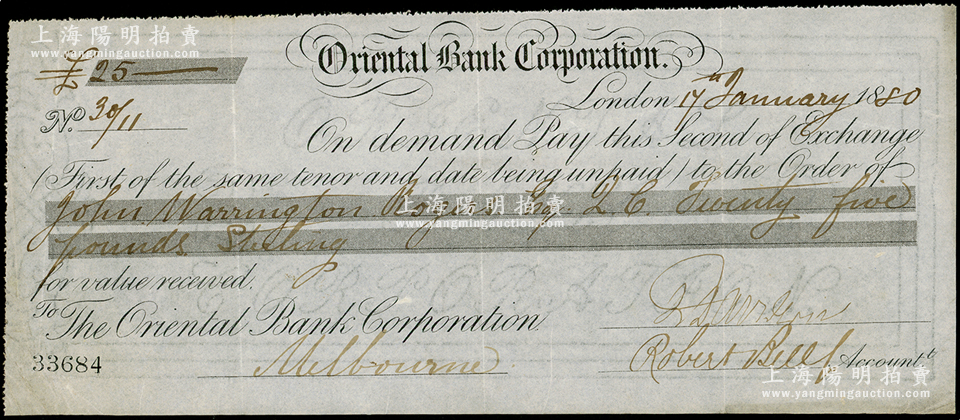 上海陽明拍賣
www.yangmingauction.com
Oriental Bank Corporation.
£ 25
London 17th January 1880
No. 30/11
On demand Pay this Second of Exchange
(First of the same tenor and date being unpaid) to the Order of
John Warrington Rogers Esq. Q. C. Twenty five
pounds Sterling
上海陽明拍賣
www.yangmingauction.com
for value received.
To The Oriental Bank Corporation
Melbourne
Robert Bell Accountt.
33684
上海陽明拍賣
www.yangmingauction.com